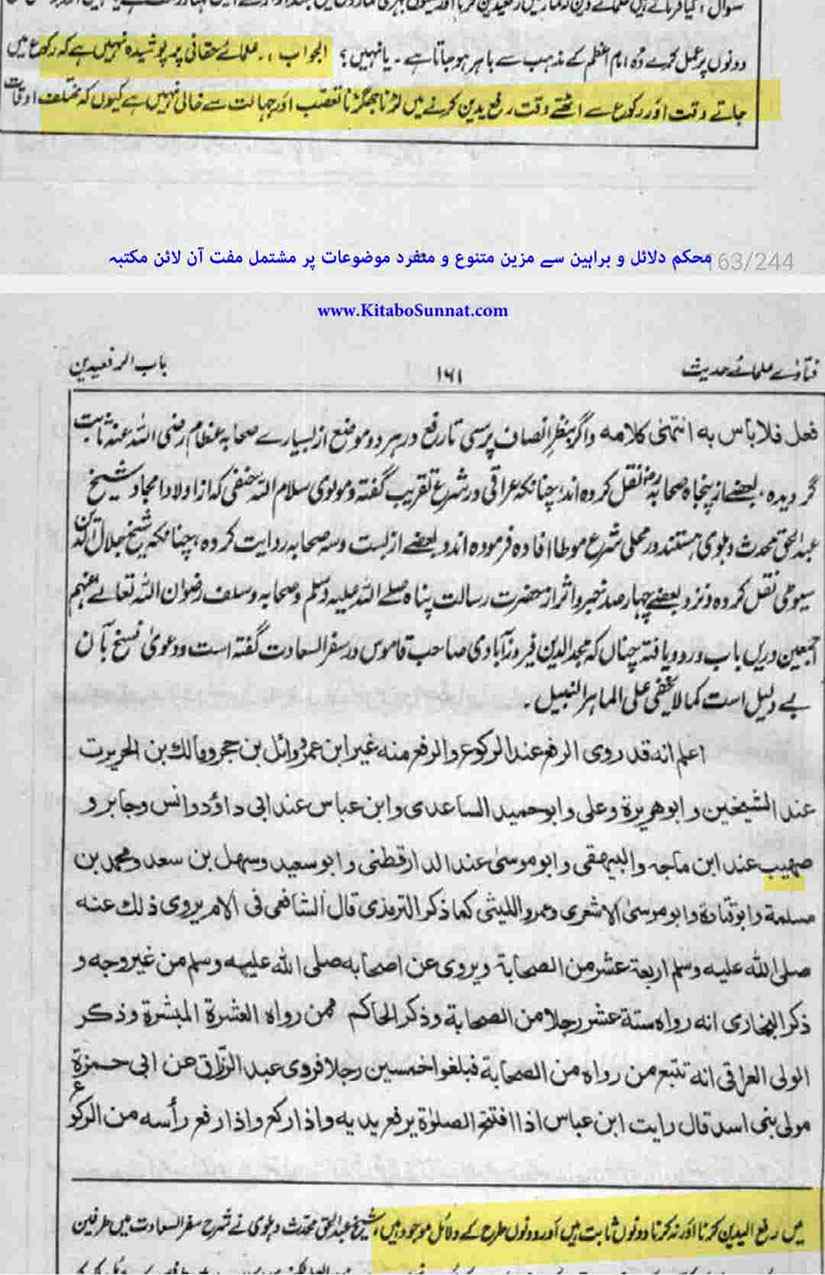 دونوں پر عمل کرے وہ امام اعظم کے مذہب سے باہر ہو جاتا ہے۔ یا نہیں؟ الجواب،، علمائے حقانی پر پوشیدہ نہیں ہے کہ رکوع میں
جاتے وقت اور رکوع سے اٹھتے وقت رفع یدین کرنے میں لڑنا جھگڑنا تعصب اور جہالت سے خالی نہیں ہے کیوں کہ مختلف اوقات
محکم دلائل و براہین سے مزین متنوع و منفرد موضوعات پر مشتمل مفت آن لائن مکتبہ
163/244
www.KitaboSunnat.com
فتاوے علمائے حدیث ۱۶۱ باب الرفعیدین
فعل فلا باس به انتهیٰ کلامه واگر بنظر انصاف پرسی تا رفع در هر دو موضع از بسیارے صحابہ عظام رضی اللہ عنہ ثابت
گردیدہ، بعضے از پنجاہ صحابہؓ نقل کردہ اند چنانکہ عراقی در شرع تقریب گفتہ و مولوی سلام اللہ حنفی کہ از اولاد امجاد شیخ
عبد الحق محدث دہلوی ہستند در محلی شرع موطا افادہ فرمودہ اند و بعضے از بست و سہ صحابہ روایت کردہ، چنانکہ شیخ جلال الدین
سیوطی نقل کردہ و نزد بعضے چہار صد خبر و اثر از حضرت رسالت پناہ صلے اللہ علیہ وسلم و صحابہ و سلف رضوان اللہ تعالےٰ علیہم
اجمعین دریں باب ورود یافتہ چناں کہ مجد الدین فیروز آبادی صاحب قاموس در سفر السعادت گفتہ است و دعویٰ نسخ بآن
بے دلیل است کما لا یخفی علی الماہر النبیل۔
اعلم انه قد روی الرفع عند الرکوع والرفع منه غیر ابن عمر وائل بن حجر و مالك بن الحریرث
عند الشیخین و ابو هریرة وعلی و ابو حمید الساعدی و ابن عباس عند ابی داؤد و انس و جابر و
صهیب عند ابن ماجه والبیهقی و ابو موسیٰ عند الدارقطنی و ابو سعید وسهل بن سعد و محمد بن
مسلمة و ابو قتادة و ابو موسیٰ الاشعری و عمرو اللیثی کما ذکر الترمذی قال الشافعی فی الام یروی ذلك عنه
صلی الله علیه وسلم اربعة عشر من الصحابة و یروی عن اصحابه صلی الله علیهه وسلم من غیر وجه و
ذکر البخاری انه رواه ستة عشر رجلا من الصحابة وذکر الحاکم ممن رواه العشرة المبشرة وذکر
الولی العراقی انه تتبع من رواه من الصحابة فبلغوا خمسین رجلا فروی عبد الرزاق عن ابی حمزة
مولی بنی اسد قال رایت ابن عباس اذا افتتح الصلوٰة یرفع یدیه و اذا رکع و اذا رفع رأسه من الرکوع
میں رفع الیدین کرنا اور نہ کرنا دونوں ثابت ہیں اور دونوں طرح کے دلائل موجود ہیں، شیخ عبد الحق محدث دہلوی نے شرح سفر السعادت میں طرفین